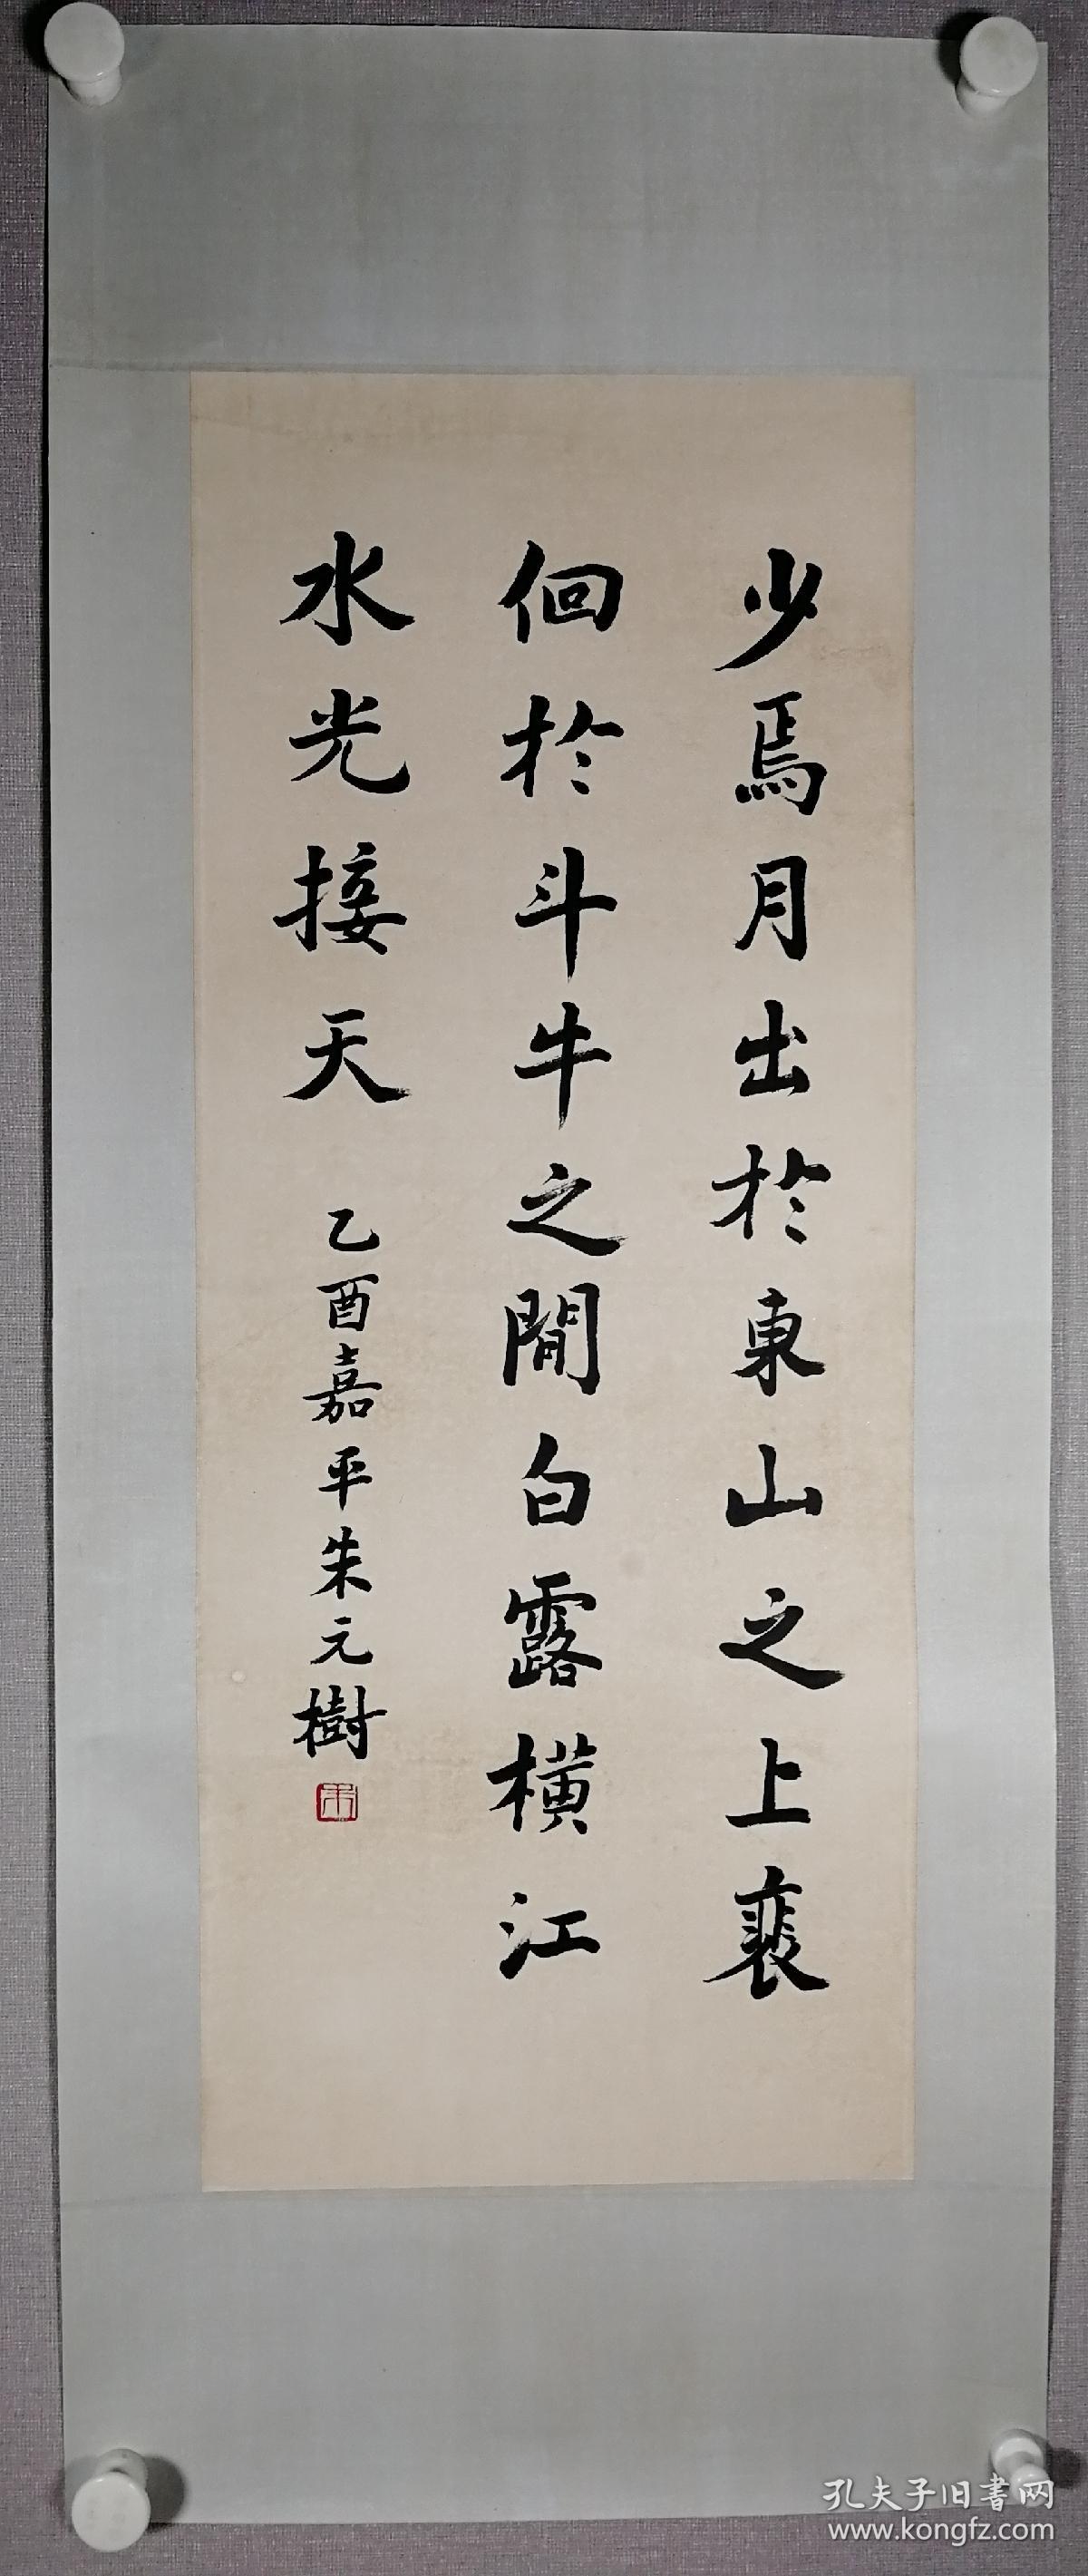 少焉月出於東山之上裵
佪於斗牛之間白露橫江
水光接天
乙酉嘉平朱元樹
朱
孔夫子旧書网
www.kongfz.com